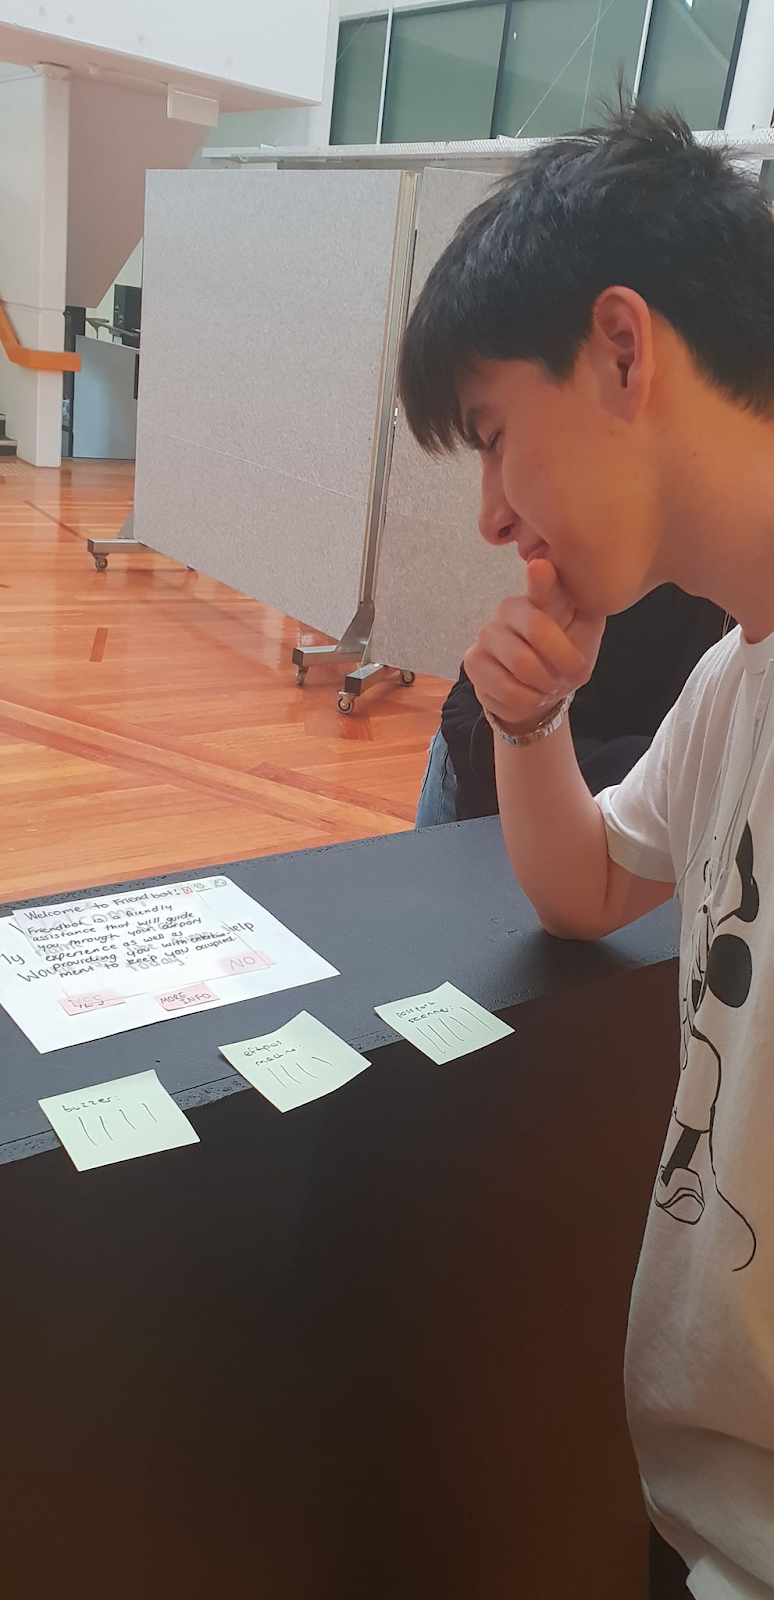 Welcome to Friendbot!
Friendbot is a friendly
assistance that will guide
you through your airport
experience as well as
providing you with entertain-
ment to keep you occupied.
My
help
Wou
today
YES
MORE
INFO
NO
buzzer:
eftpos
machine:
passport
scanner: